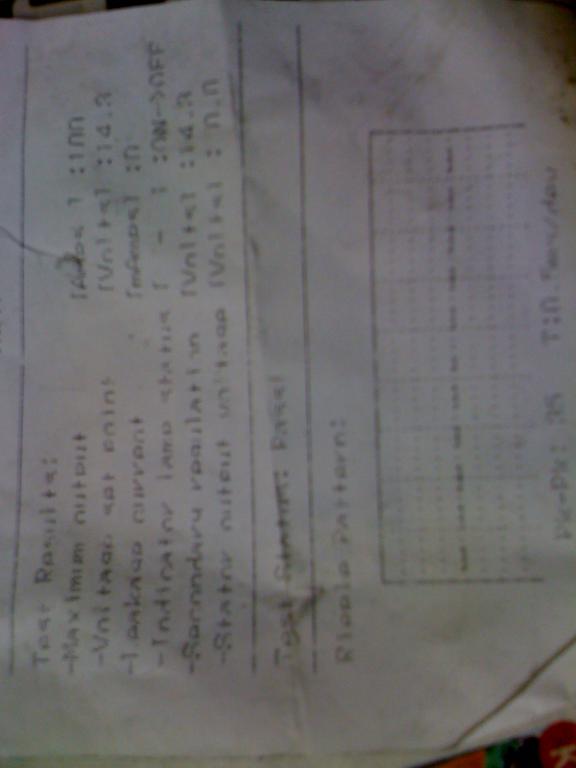 Test Results:
-Maximum output [Amps ] :100
-Voltage set point [Volts] :14.3
-Leakage current [mAmps] :0
-Indicator lamp status [ - ] :ON->OFF
-Secondary regulation [Volts] :14.3
-Stator output voltage [Volts] : 0.0
Test Status: Pass!
Ripple Pattern:
Pk-Pk: 35 T:0.5ms/dev